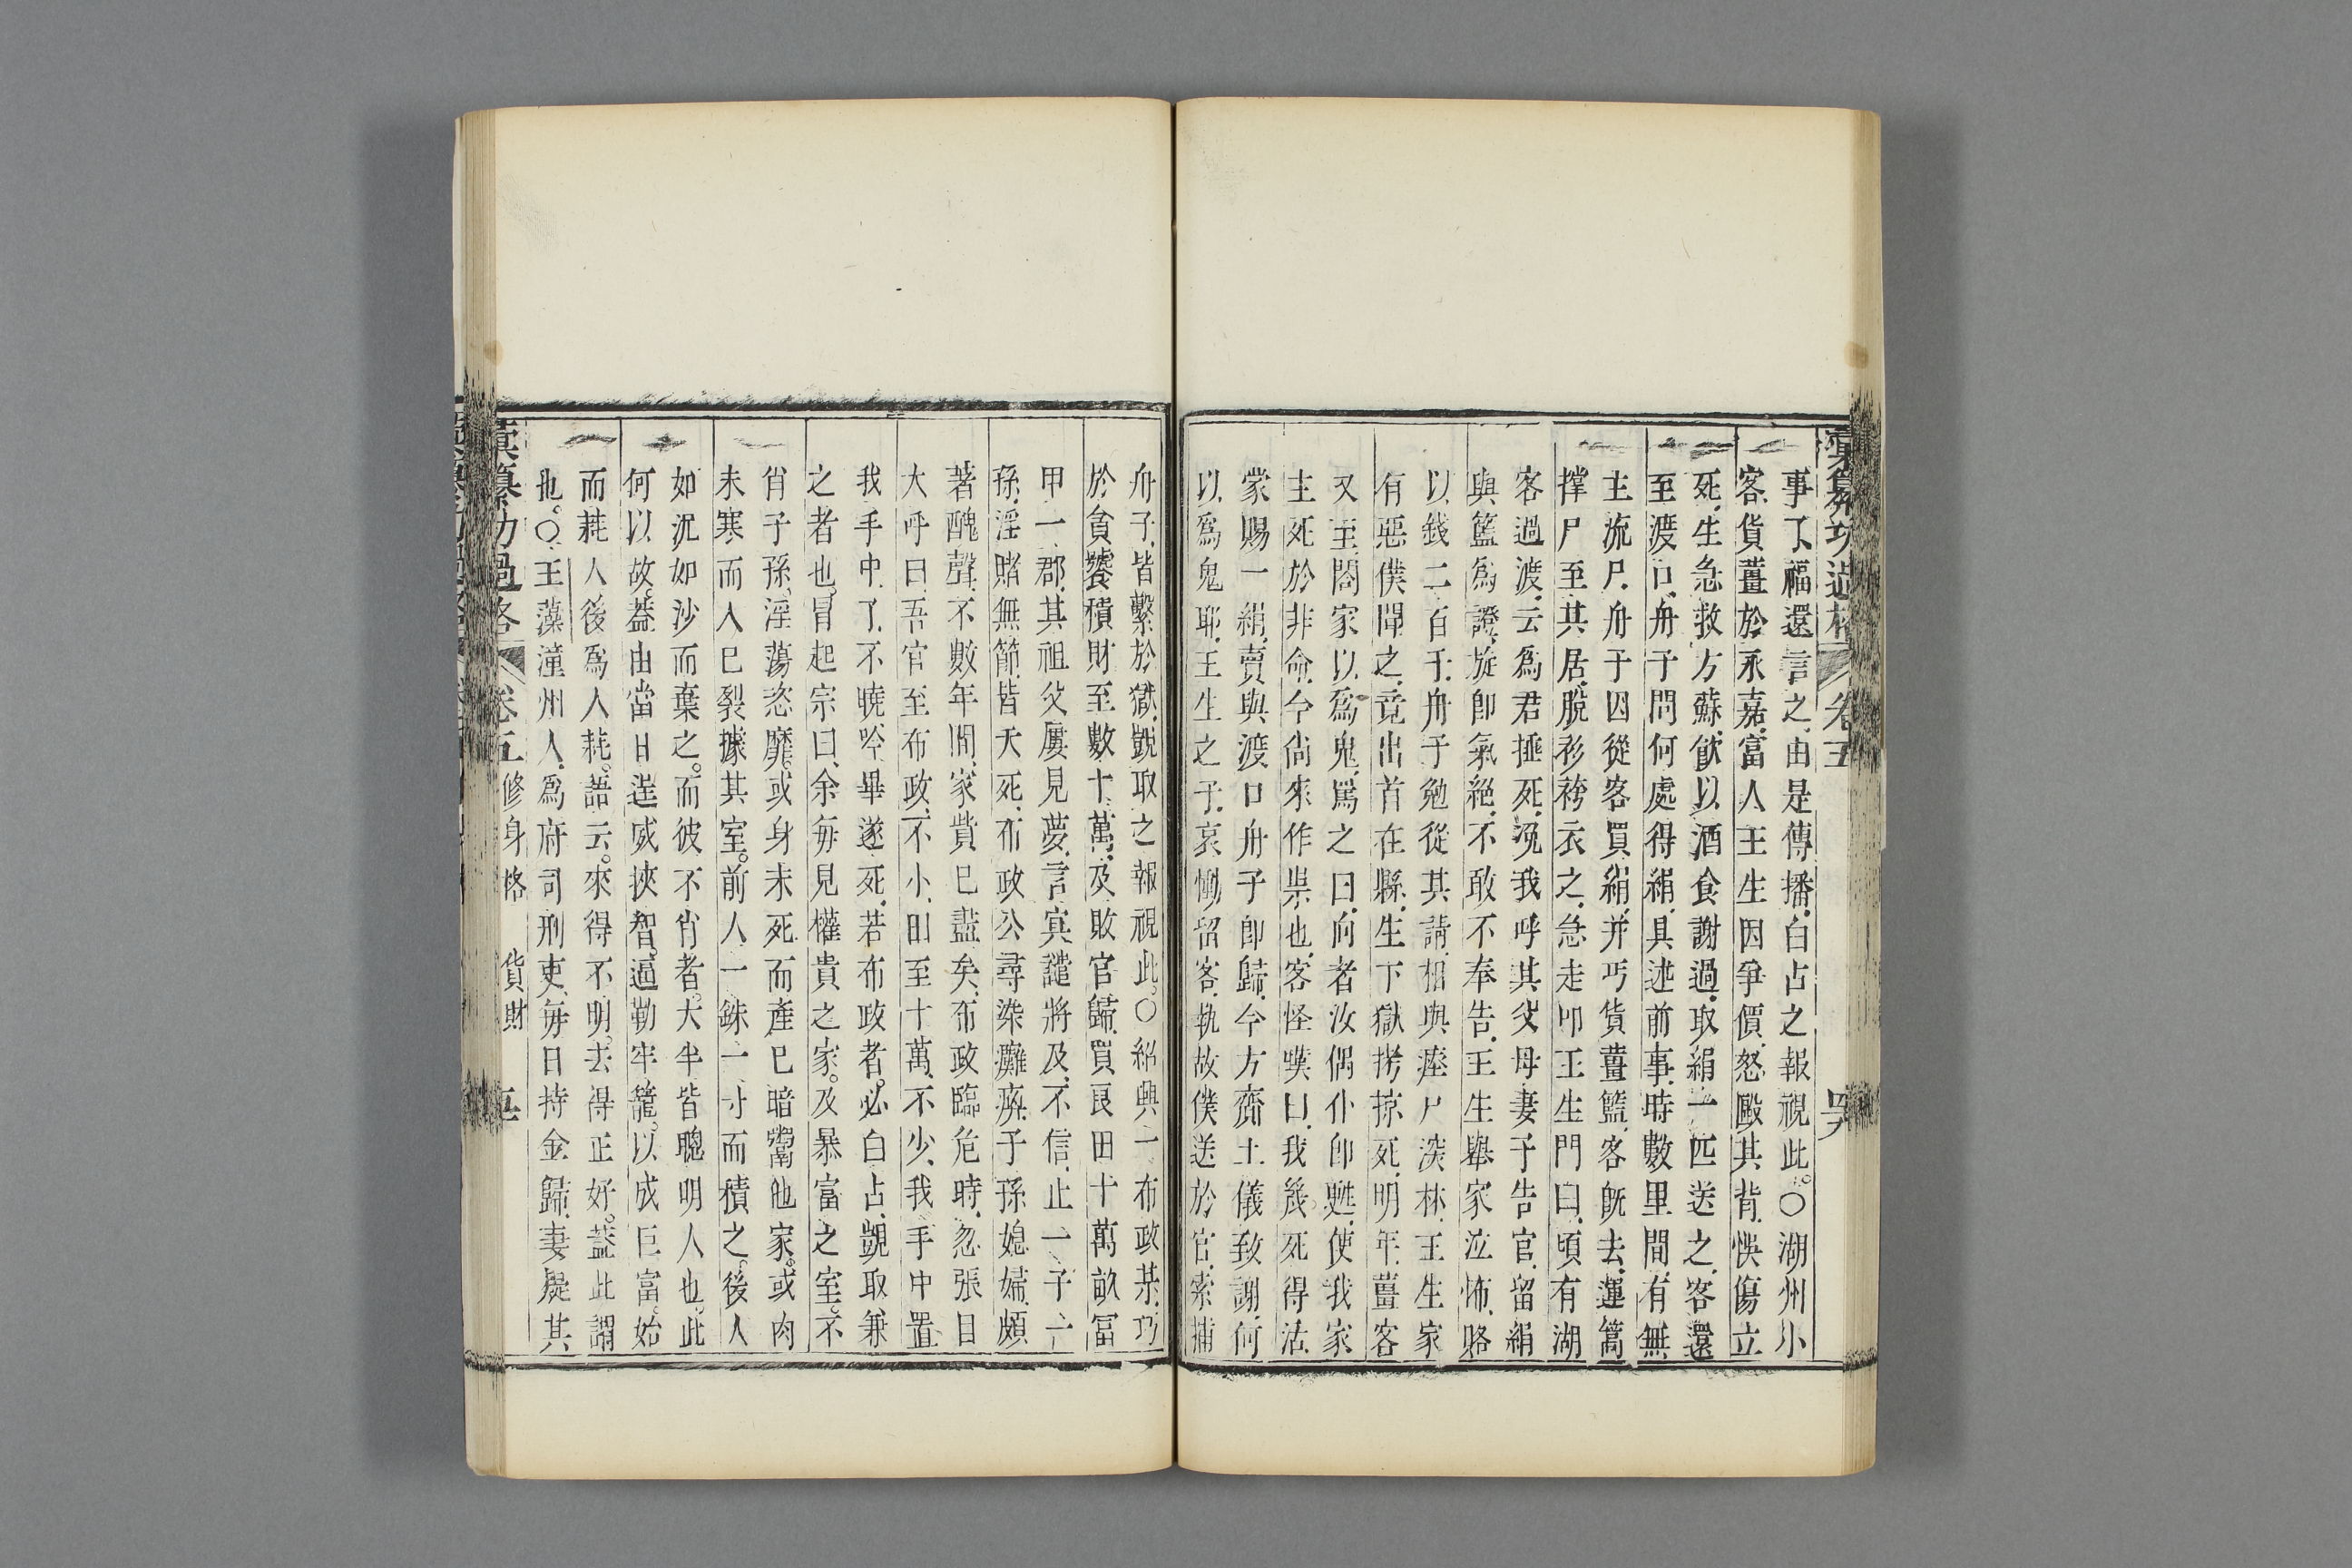 彙纂功過格 卷五
事了福還言之由是傳播白占之報視此○湖州小
客貨薑於永嘉富人王生因爭價怒毆其背悞傷立
死生急救方蘇飲以酒食謝過取絹一匹送之客還
至渡口舟子問何處得絹具述前事時數里間有無
主流尸舟子因從客買絹并丐貨薑籃客旣去運篙
撑尸至其居脫衫袴衣之急走叩王生門曰頃有湖
客過渡云爲君捶死浼我呼其父母妻子告官留絹
與籃爲證旋卽氣絕不敢不奉告王生舉家泣怖賂
以錢二百千舟子勉從其請相與瘞尸深林王生家
有惡僕聞之竟出首在縣生下獄拷掠死明年薑客
又至闔家以爲鬼罵之曰向者汝偶仆卽甦使我家
主死於非命今尙來作祟也客怪嘆曰我幾死得活
蒙賜一絹賣與渡口舟子卽歸今方齎土儀致謝何
以爲鬼耶王生之子哀慟留客執故僕送於官索捕
舟子皆繫於獄覬取之報視此○紹興一布政某巧
於貪饕積財至數十萬及敗官歸買良田十萬畝冨
甲一郡其祖父屢見夢言冥譴將及不信止一子一
孫淫賭無節皆夭死布政公尋染癱瘓子孫媳婦頗
著醜聲不數年間家貲已盡矣布政臨危時忽張目
大呼曰吾官至布政不小田至十萬不少我手中置
我手中了不曉吟畢遂死若布政者必白占覬取兼
之者也冒起宗曰余每見權貴之家及暴富之室不
肖子孫淫蕩恣靡或身未死而產已暗鬻他家或肉
未寒而人已裂據其室前人一銖一寸而積之後人
如沉如沙而棄之而彼不肖者大半皆聰明人也此
何以故蓋由當日逞威挾智逼勒牢籠以成巨富始
而耗人後爲人耗語云來得不明去得正好蓋此謂
也○王藻潼州人爲府司刑吏每日持金歸妻疑其
彙纂功過格 卷五 修身格 貨財